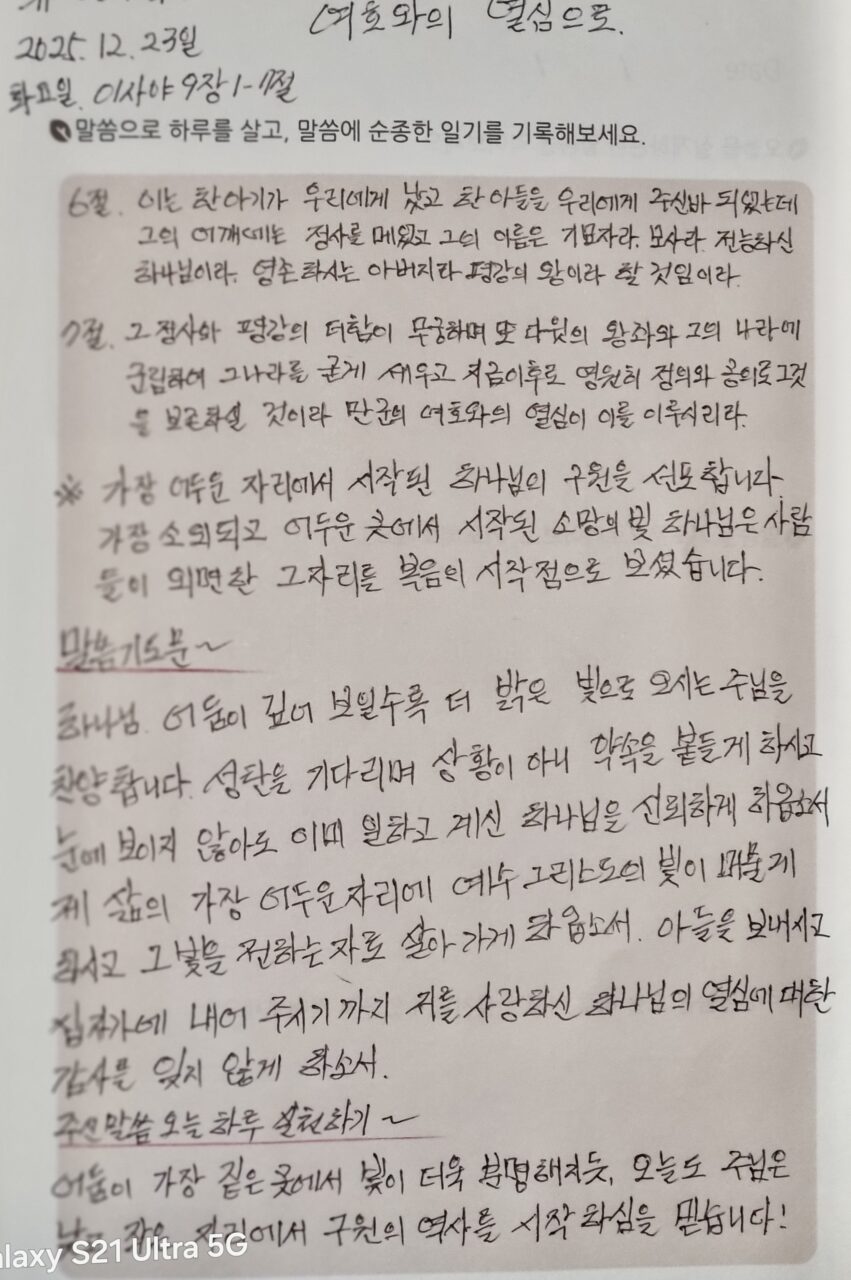 여호와의 열심으로.
2025. 12. 23일
화요일. 이사야 9장 1-7절
말씀으로 하루를 살고, 말씀에 순종한 일기를 기록해보세요.
6절. 이는 한 아기가 우리에게 났고 한 아들을 우리에게 주신바 되었는데
그의 어깨에는 정사를 메었고 그의 이름은 기묘자라. 모사라. 전능하신
하나님이라. 영존하시는 아버지라 평강의 왕이라 할 것임이라.
7절. 그 정사와 평강의 더함이 무궁하며 또 다윗의 왕좌와 그의 나라에
군림하여 그나라를 굳게 세우고 지금이후로 영원히 정의와 공의로 그것
을 보존하실 것이라 만군의 여호와의 열심이 이를 이루시리라.
※ 가장 어두운 자리에서 시작된 하나님의 구원을 선포합니다.
가장 소외되고 어두운 곳에서 시작된 소망의 빛 하나님은 사람
들이 외면한 그자리를 복음의 시작점으로 보셨습니다.
말씀기도문~
하나님. 어둠이 깊어 보일수록 더 밝은 빛으로 오시는 주님을
찬양합니다. 성탄을 기다리며 상황이 아니 약속을 붙들게 하시고
눈에 보이지 않아도 이미 일하고 계신 하나님을 신뢰하게 하옵소서
제 삶의 가장 어두운자리에 예수 그리스도의 빛이 머물게
하시고 그빛을 전하는자로 살아가게 하옵소서. 아들을 보내시고
십자가에 내어 주시기까지 저를 사랑하신 하나님의 열심에 대한
감사를 잊지 않게 하소서.
주신말씀 오늘 하루 실천하기~
어둠이 가장 짙은 곳에서 빛이 더욱 분명해지듯, 오늘도 주님은
낮고 작은 자리에서 구원의 역사를 시작하심을 믿습니다!
Galaxy S21 Ultra 5G